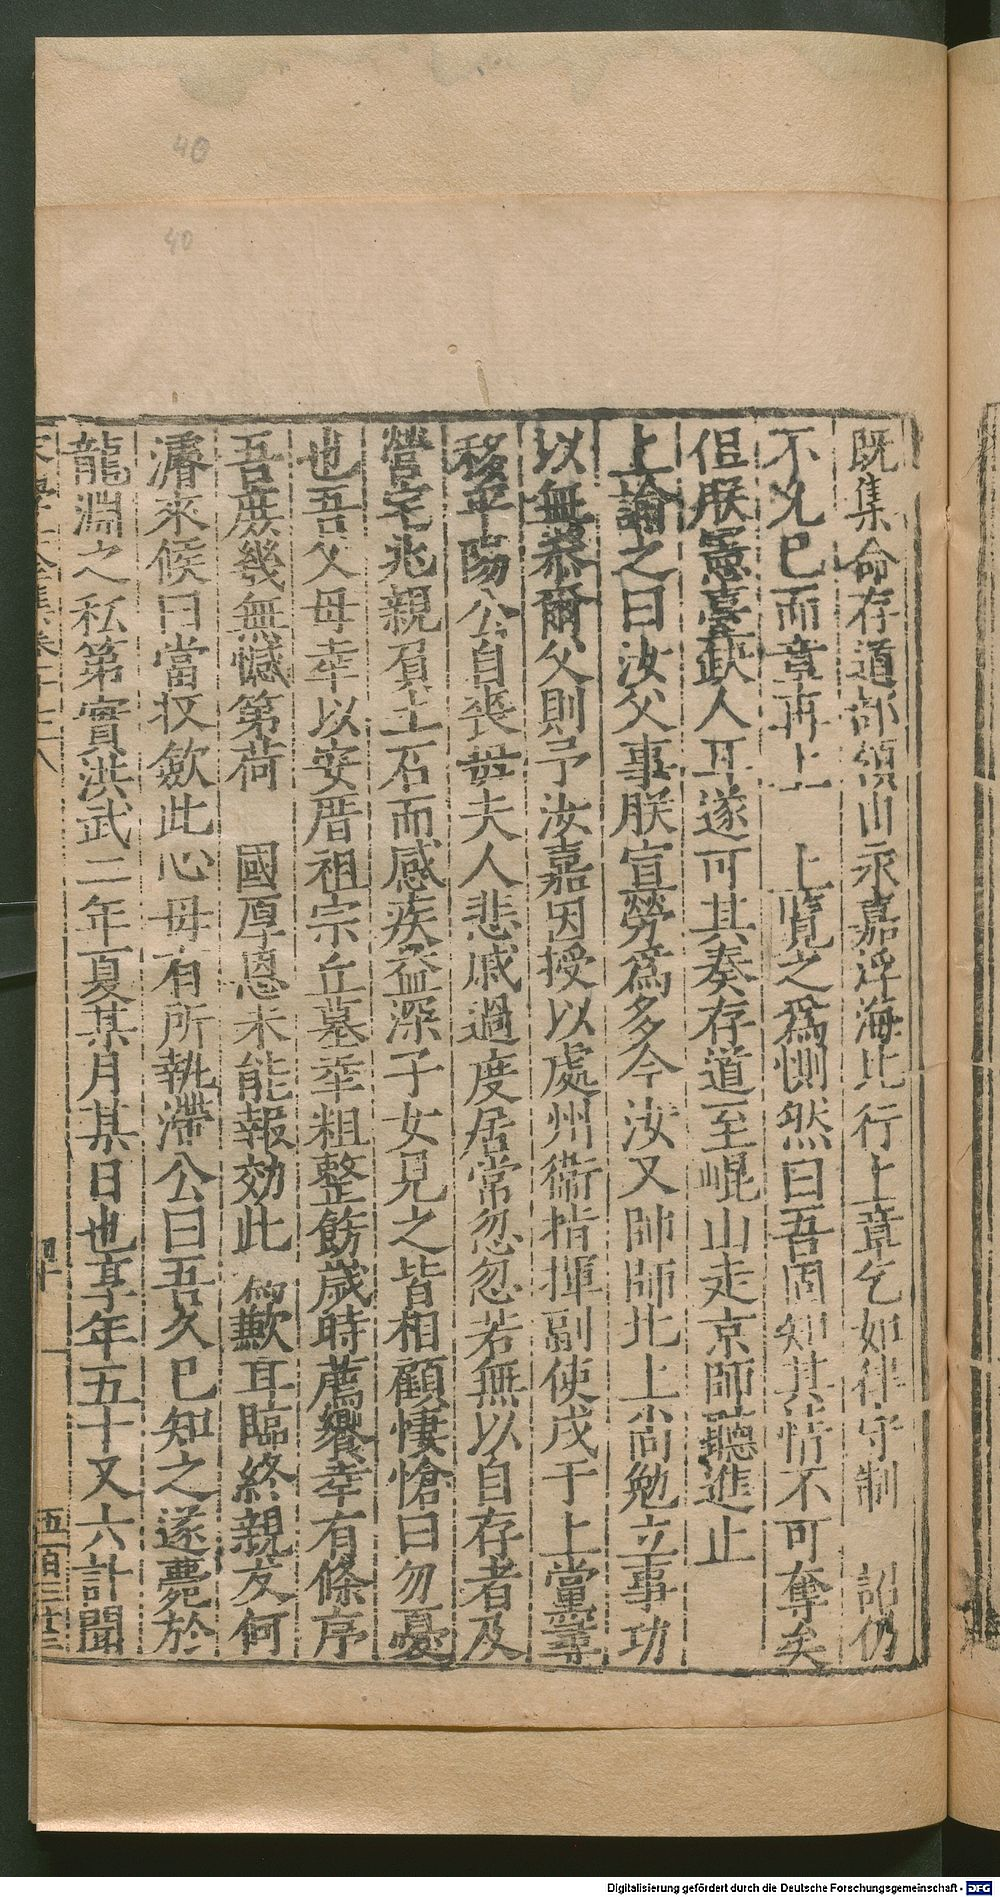 40
40
既集命存道部領由永嘉浮海北行上章乞如律守制 詔仍
不允已而章再上 上覽之為惻然曰吾固知其情不可奪矣
但朕憲臺缺人耳遂可其奏存道至崐山走京師聽進止
上諭之曰汝父事朕宣勞為多今汝又帥師北上尚勉立事功
以無忝爾父則予汝嘉因授以處州衞指揮副使戍于上黨尋
移平陽公自喪毋夫人悲戚過度居常忽忽若無以自存者及
營宅兆親負土石而感疾益深子女見之皆相顧悽愴曰勿憂
也吾父母幸以安厝祖宗丘墓幸粗整飭歲時薦饗幸有條序
吾庻幾無憾第荷 國厚恩未能報効此 為歉耳臨終親友何
濬來候曰當扠斂此心毋有所執滯公曰吾久已知之遂薨於
龍淵之私第實洪武二年夏某月某日也享年五十又六訃聞
四十
五百三廿三
Digitalisierung gefördert durch die Deutsche Forschungsgemeinschaft - DFG